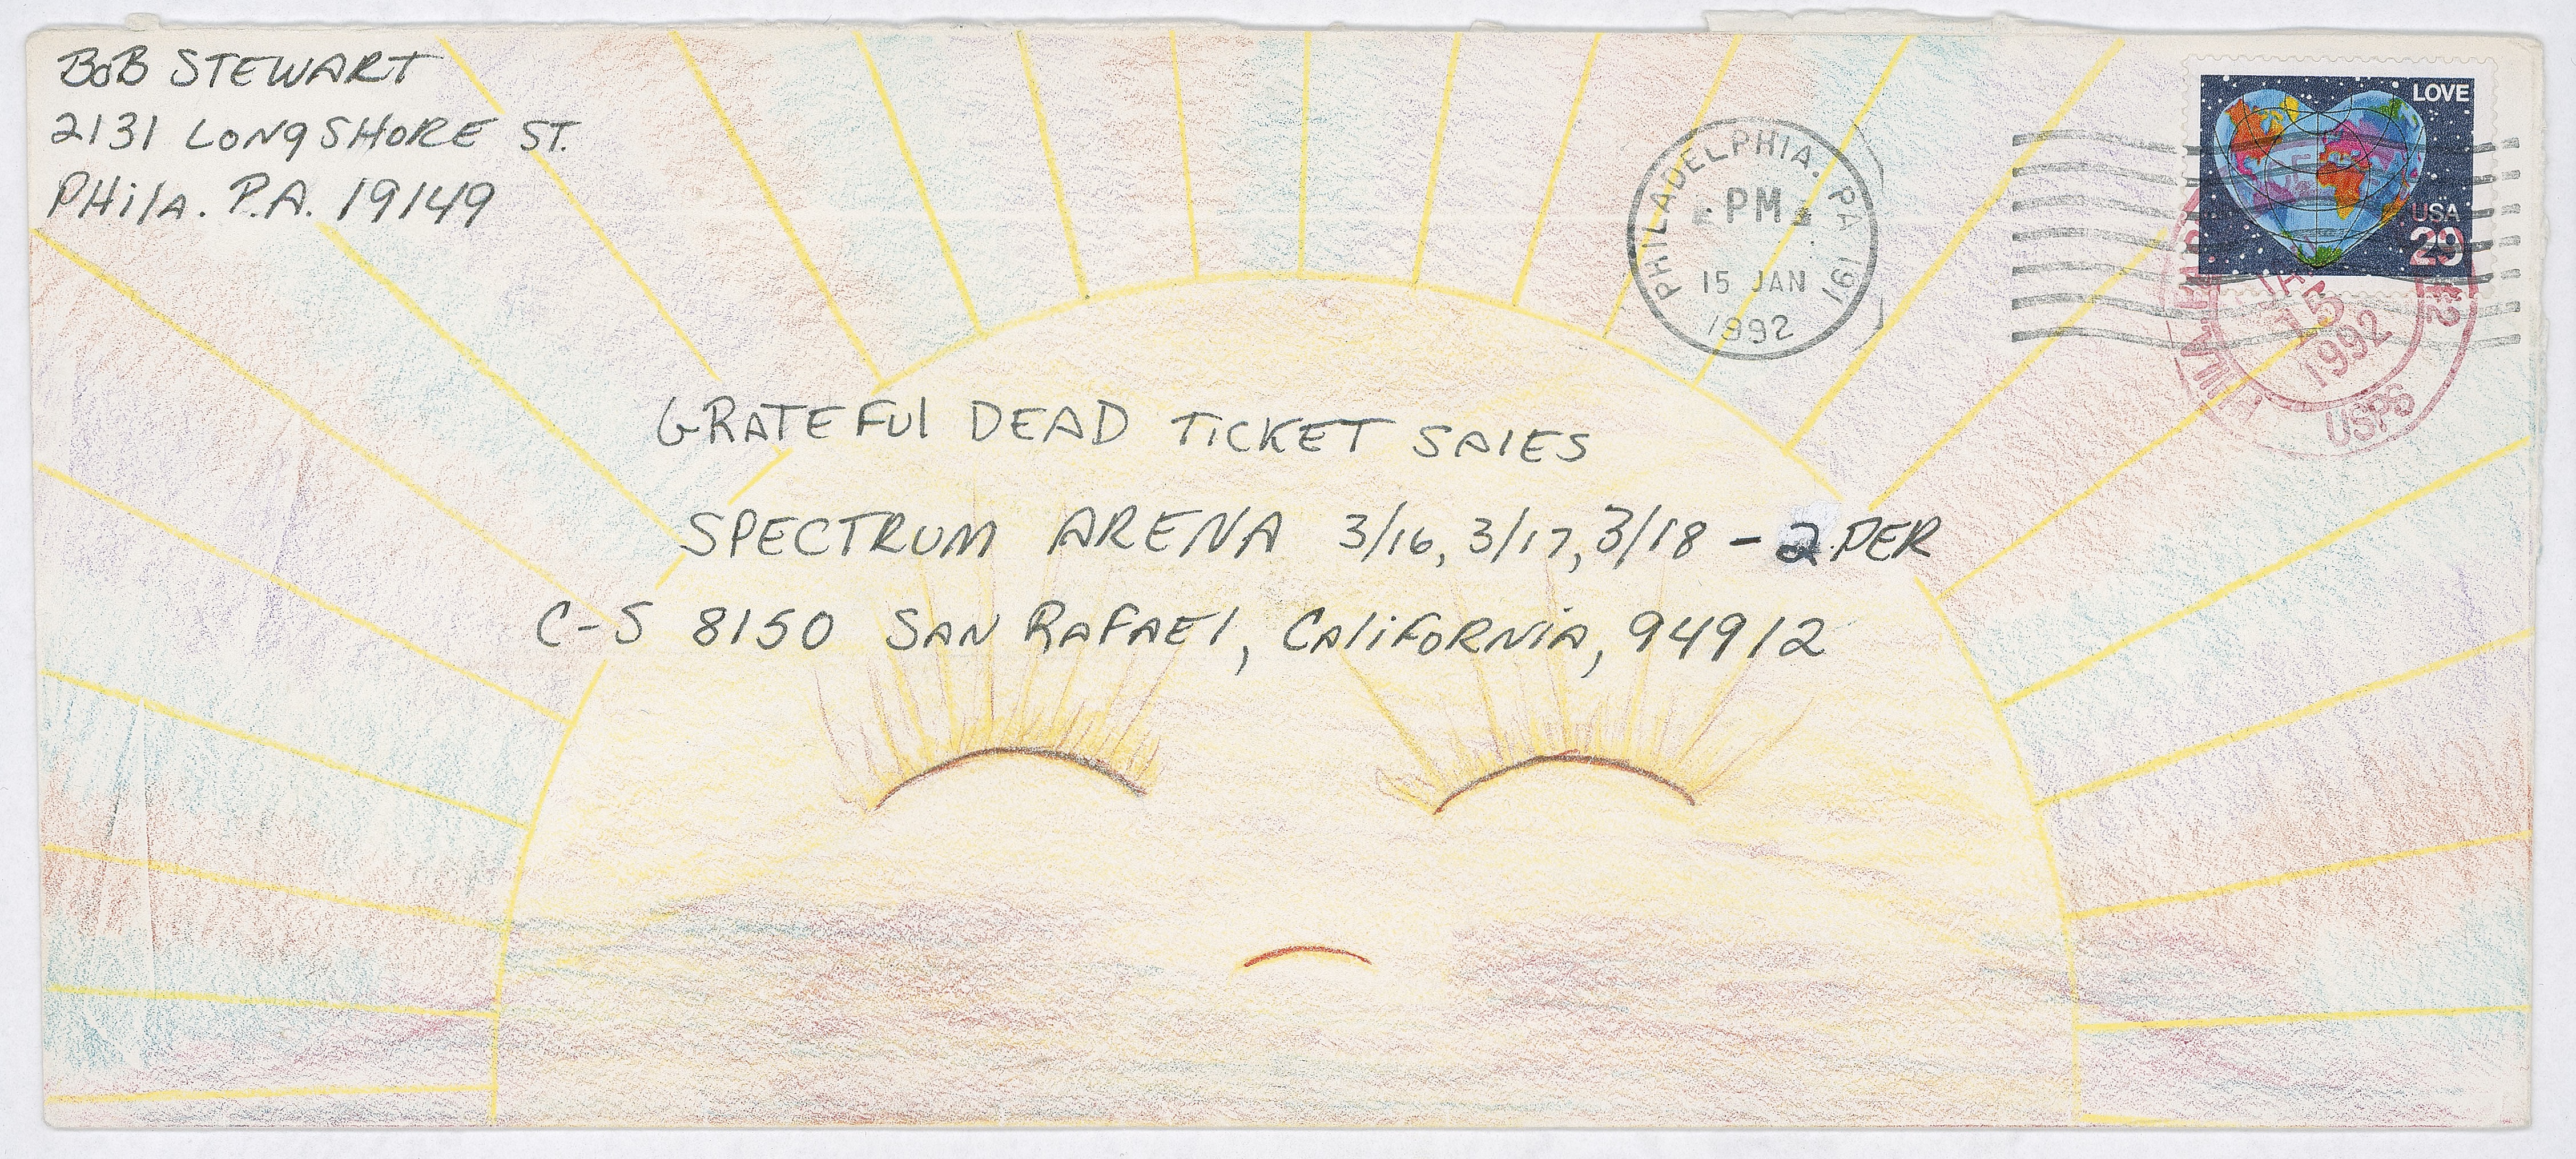 BOB STEWART
2131 LONGSHORE ST.
PHilA. P.A. 19149
LOVE
USA
29
PHILADELPHIA. PA 191
PM
15 JAN
1992
15
1992
USPS
GRATEFUl DEAD TiCKET SAlES
SPECTRUM ARENA 3/16, 3/17, 3/18 - 2 PER
C-S 8150 SAN RAFAEl, CAliFORNiA, 94912